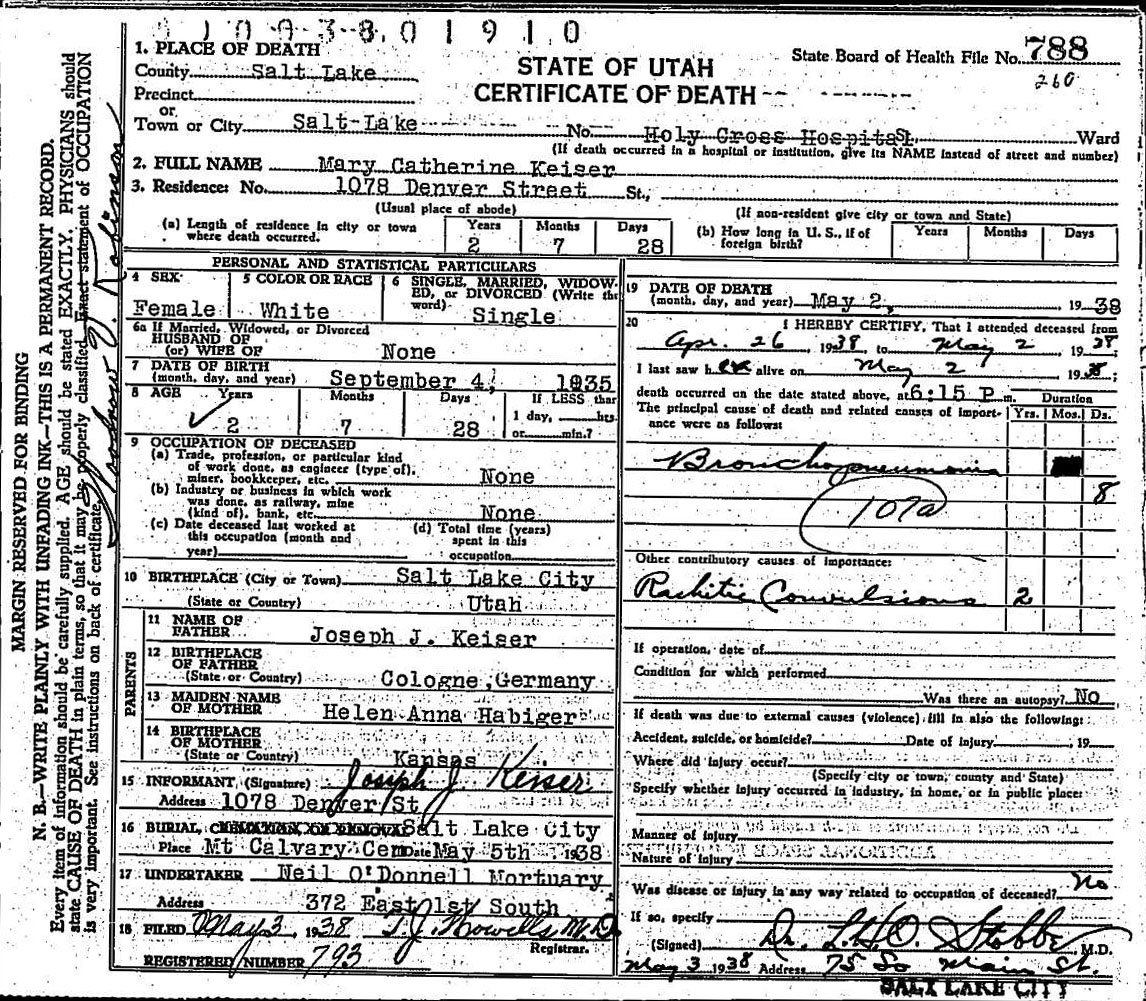 1. PLACE OF DEATH
County Salt Lake
Precinct
or
Town or City Salt-Lake No. Holy Cross Hospital, Ward
(If death occurred in a hospital or institution, give its NAME instead of street and number)
STATE OF UTAH
CERTIFICATE OF DEATH
State Board of Health File No. 788
260
2. FULL NAME Mary Catherine Keiser
3. Residence: No. 1078 Denver Street St.,
(Usual place of abode) (If non-resident give city or town and State)
(a) Length of residence in city or town where death occurred. Years 2 Months 7 Days 28
(b) How long in U. S., if of foreign birth? Years Months Days
PERSONAL AND STATISTICAL PARTICULARS
4 SEX Female
5 COLOR OR RACE White
6 SINGLE, MARRIED, WIDOWED, or DIVORCED (Write the word) Single
6a If Married, Widowed, or Divorced
HUSBAND OF
(or) WIFE OF None
7 DATE OF BIRTH
(month, day, and year) September 4, 1935
8 AGE Years 2 Months 7 Days 28 If LESS than 1 day, hrs. or min.?
9 OCCUPATION OF DECEASED
(a) Trade, profession, or particular kind of work done, as engineer (type of), miner, bookkeeper, etc. None
(b) Industry or business in which work was done, as railway, mine (kind of), bank, etc. None
(c) Date deceased last worked at this occupation (month and year)
(d) Total time (years) spent in this occupation
10 BIRTHPLACE (City or Town) Salt Lake City
(State or Country) Utah
PARENTS
11 NAME OF FATHER Joseph J. Keiser
12 BIRTHPLACE OF FATHER
(State or Country) Cologne, Germany
13 MAIDEN NAME OF MOTHER Helen Anna Habiger
14 BIRTHPLACE OF MOTHER
(State or Country) Kansas
15 INFORMANT, (Signature) Joseph J. Keiser
Address 1078 Denver St
16 BURIAL, CREMATION OR REMOVAL Salt Lake City
Place Mt Calvary Cem Date May 5th 1938
17 UNDERTAKER Neil O'Donnell Mortuary
Address 372 East 1st South
18 FILED May 3, 1938 T.J. Howells M.D.
Registrar.
REGISTERED NUMBER 793
19 DATE OF DEATH
(month, day, and year) May 2, 1938
20 I HEREBY CERTIFY, That I attended deceased from
Apr. 26, 1938 to May 2 1938
I last saw her alive on May 2 1938;
death occurred on the date stated above, at 6:15 P. m. Duration
The principal cause of death and related causes of importance were as follows: Yrs. Mos. Ds.
Bronchopneumonia
8
107a
Other contributory causes of importance:
Rachitic Convulsions 2
If operation, date of
Condition for which performed
Was there an autopsy? No
If death was due to external causes (violence) fill in also the following:
Accident, suicide, or homicide? Date of injury , 19
Where did injury occur?
(Specify city or town, county and State)
Specify whether injury occurred in industry, in home, or in public place:
Manner of injury
Nature of injury
Was disease or injury in any way related to occupation of deceased? No
If so, specify
(Signed) Dr. L.H.O. Stobbe, M.D.
May 3 1938 Address 75 So Main St.
SALT LAKE CITY
MARGIN RESERVED FOR BINDING
N. B.—WRITE PLAINLY WITH UNFADING INK—THIS IS A PERMANENT RECORD.
Every item of information should be carefully supplied. AGE should be stated EXACTLY. PHYSICIANS should
state CAUSE OF DEATH in plain terms, so that it may be properly classified. Exact statement of OCCUPATION
is very important. See instructions on back of certificate.
Robinson